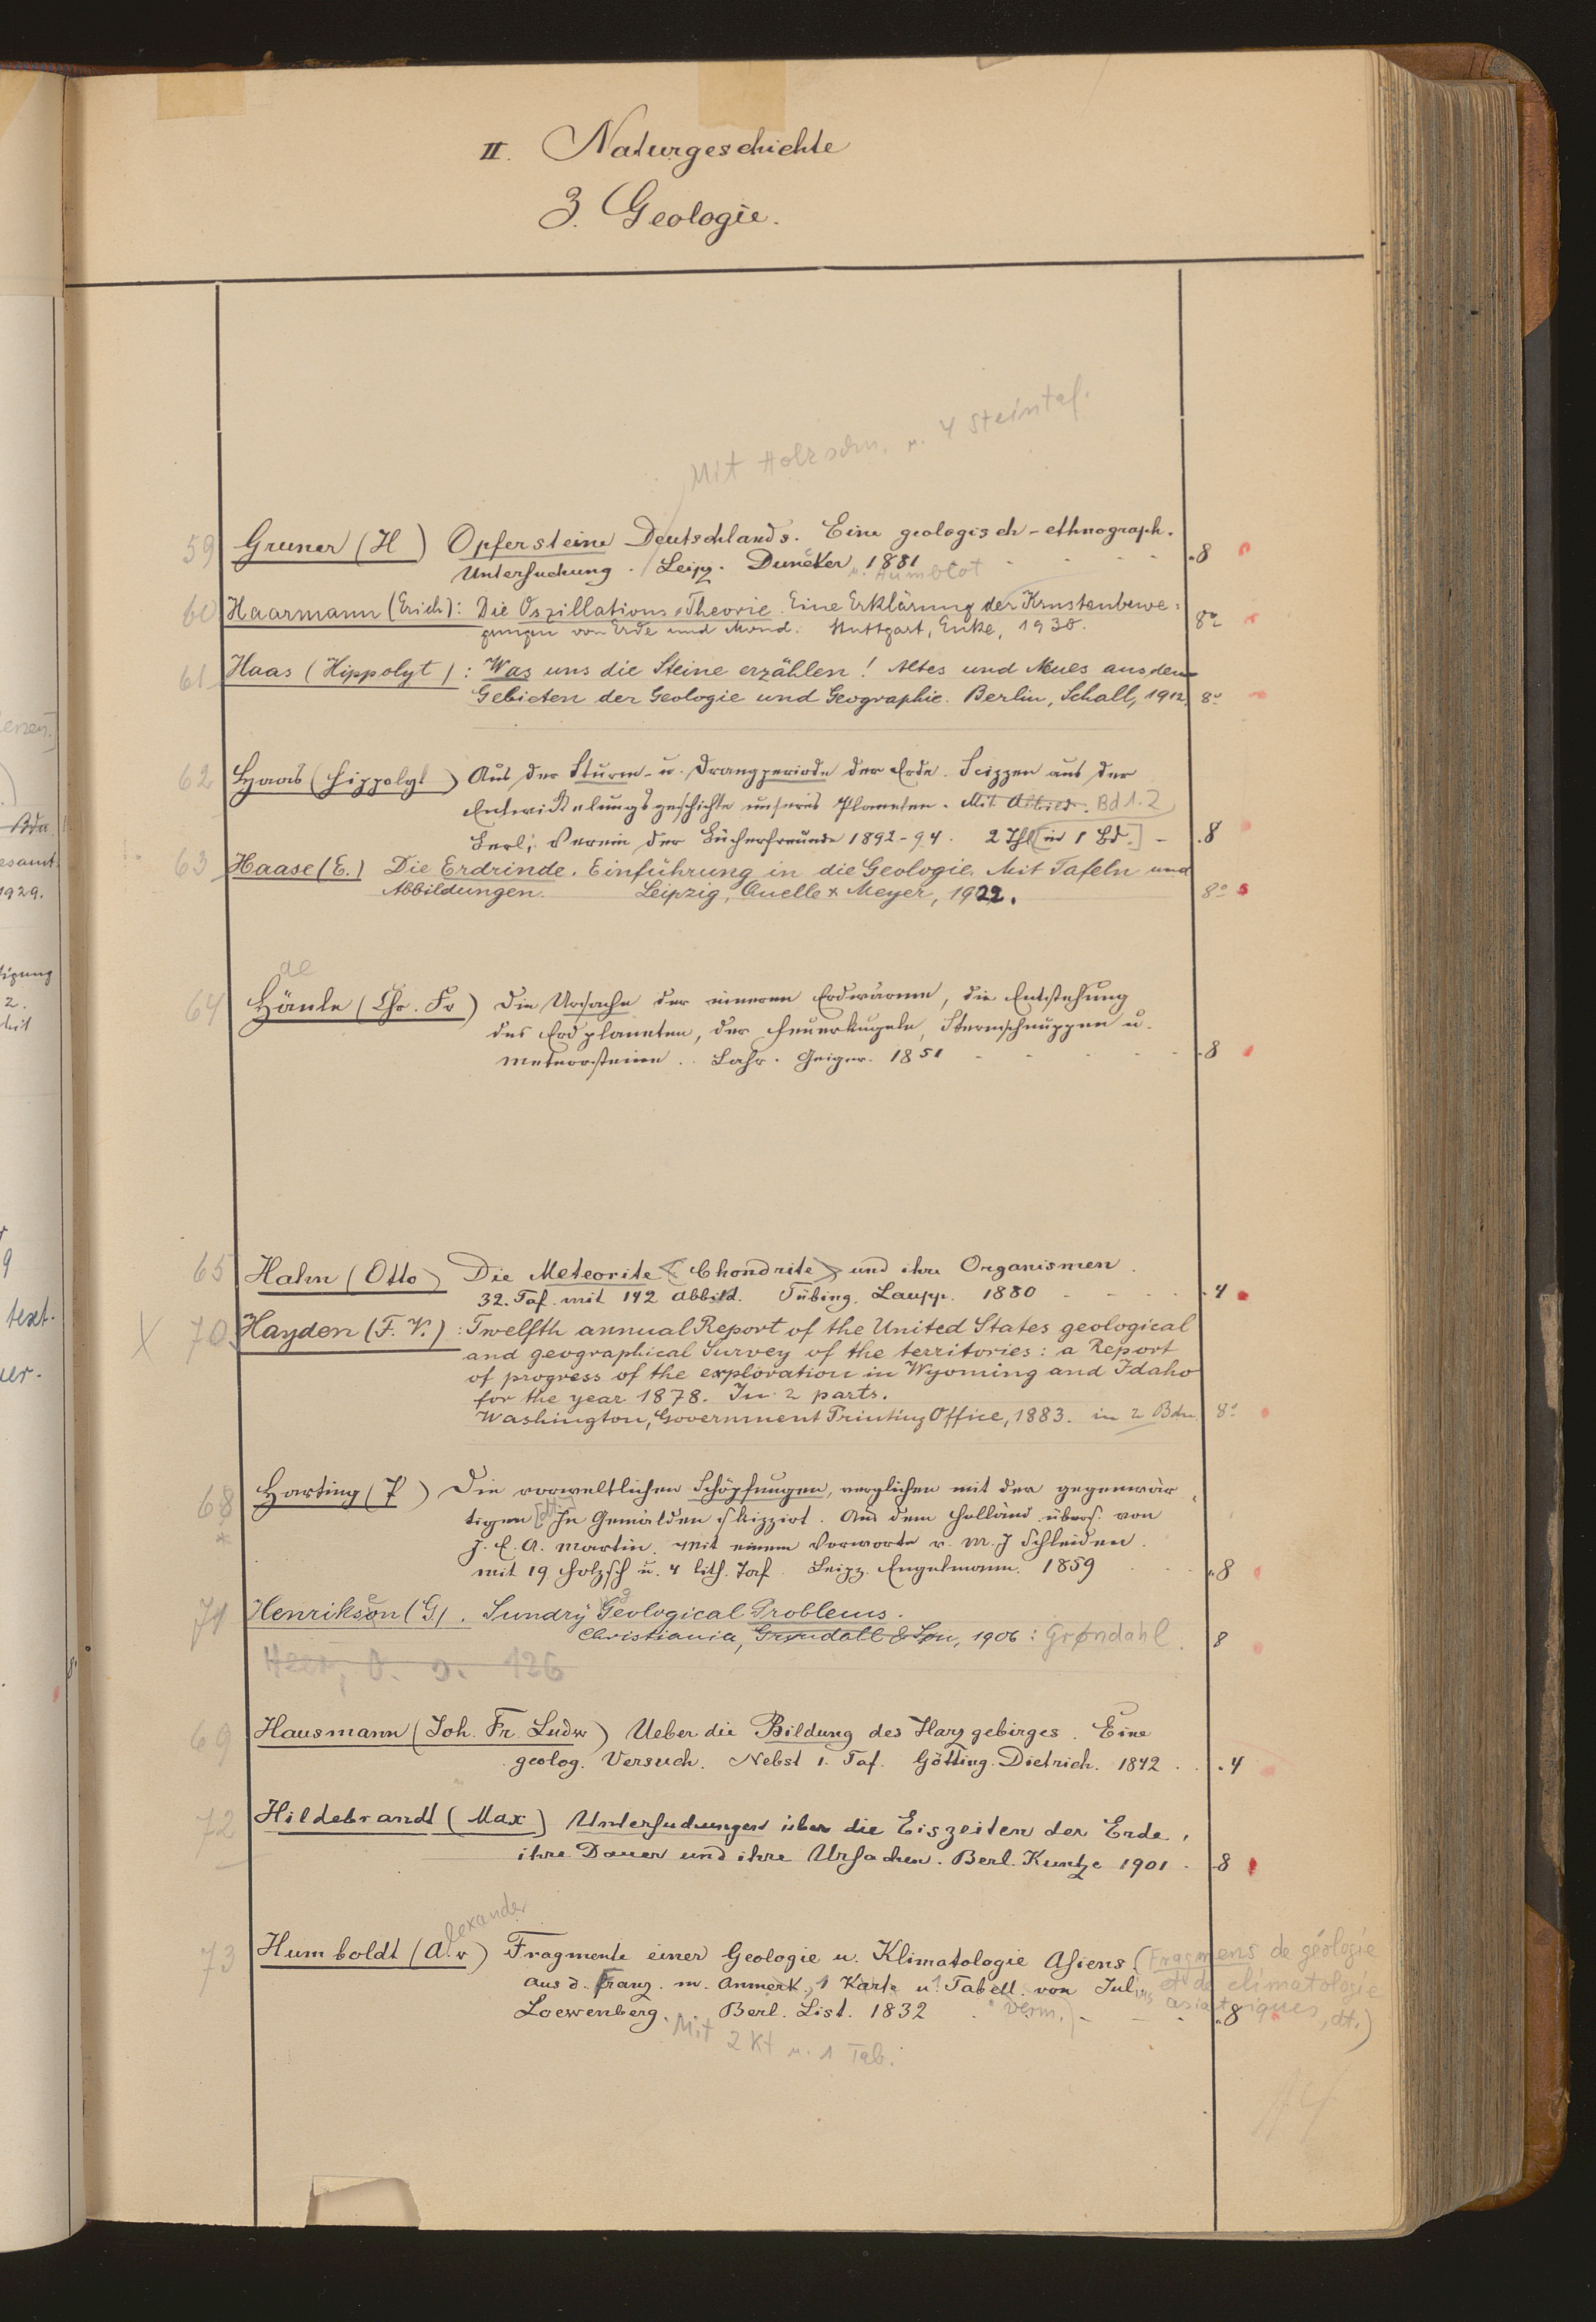 II. Naturgeschichte
3. Geologie.
Mit Holzschn. u. 4 Steintaf.
59 Gruner (H) Opfersteine Deutschlands. Eine geologisch-ethnograph.
Untersuchung. Leipz. Duncker 1881 u. Humblot .8
60 Haarmann (Erich): Die Oszillations-Theorie. Eine Erklärung der Krustenbewe-
gungen von Erde und Mond. Stuttgart, Enke, 1930. 8°
61 Haas (Hippolyt): Was uns die Steine erzählen! Altes und Neues aus den
Gebieten der Geologie und Geographie. Berlin, Schall, 1912. 8°
62 Haas (Hippolyt) Aus der Sturm- u. Drangperiode der Erde. Scizzen aus der
Entwickelungsgeschichte unseres Planeten. Mit Abbild. Bd 1.2
Berl, Verein der Bücherfreunde 1892-94. 2 Thl [in 1 Bd.] - .8
63 Haase (E.) Die Erdrinde. Einführung in die Geologie. Mit Tafeln und
Abbildungen. Leipzig, Quelle & Meyer, 1922. 8°
ae
64 Hänle (Chr. Fr) Die Ursache der inneren Erdwärme, die Entstehung
des Erdplaneten, der Feuerkugeln, Sternschnuppen u.
Meteorsteine .. Lahr. Geiger. 1851 .8
65 Hahn (Otto) Die Meteorite (Chondrite) und ihre Organismen.
32. Taf. mit 142 Abbild. Tübing. Laupp. 1880 .4
X 70 Hayden (F. V.): Twelfth annual Report of the United States geological
and geographical Survey of the territories: a Report
of progress of the exploration in Wyoming and Idaho
for the year 1878. In 2 parts.
Washington, Government Printing Office, 1883. in 2 Bdn 8°
68 Harting (P) Die vorweltlichen Schöpfungen, verglichen mit der gegenwär-
tigen [dt.] In Gemälden skizzirt. Aus dem Holländ. übers. von
* J. E. A. Martin. Mit einem Vorworte v. M. J Schleiden.
Mit 19 Holzsch u. 4 lith. Taf. Leipz. Engelmann. 1859 .8
71 Henrikson (G). Sundry Geological Problems.
Christiania, Grøndall & Søn, 1906: Grøndahl. 8
Heer, O. s. 126
69 Hausmann (Joh. Fr. Ludw) Ueber die Bildung des Harzgebirges. Eine
geolog. Versuch. Nebst 1. Taf. Götting. Dietrich. 1842 .4
72 Hildebrandt (Max) Untersuchungen über die Eiszeiten der Erde,
ihre Dauer und ihre Ursachen. Berl. Kuntze 1901. 8
lexander
73 Humboldt (A. v) Fragmente einer Geologie u. Klimatologie Asiens (Fragmens de géologie
Aus d. Franz. m. Anmerk, 1 Karte u 1 Tabell. von Julius et de climatologie
Loewenberg. Berl. List. 1832 verm.) .8 asiatiques, dt.)
Mit 2 Kt u. 1 Tab.